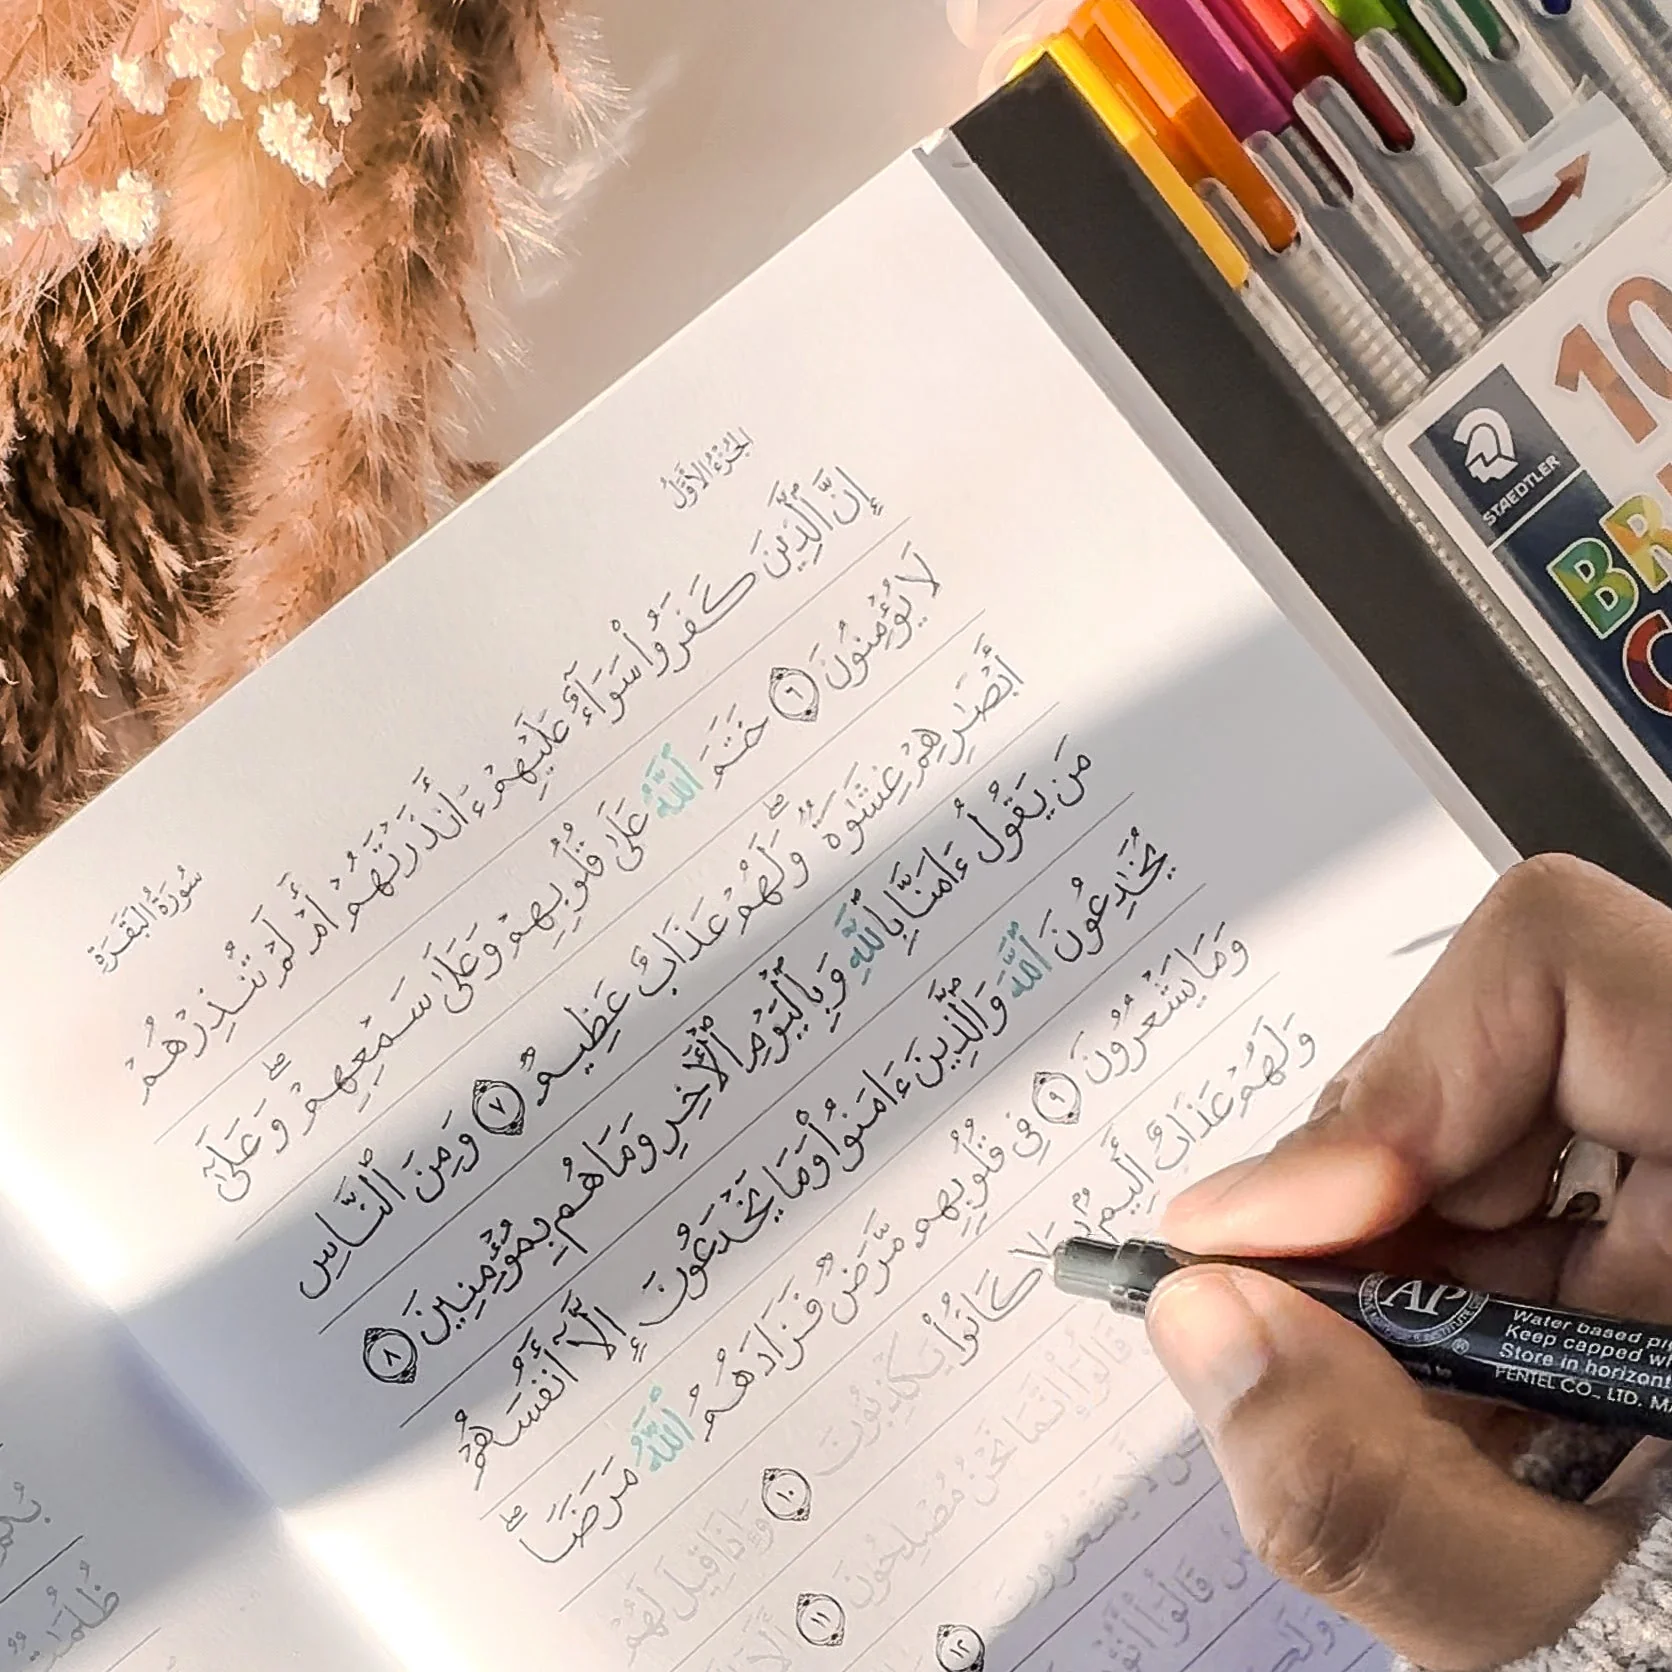 الجزء الأول
سورة البقرة
إِنَّ ٱلَّذِينَ كَفَرُوا۟ سَوَآءٌ عَلَيْهِمْ ءَأَنذَرْتَهُمْ أَمْ لَمْ تُنذِرْهُمْ
لَا يُؤْمِنُونَ ٦ خَتَمَ ٱللَّهُ عَلَىٰ قُلُوبِهِمْ وَعَلَىٰ سَمْعِهِمْ ۖ وَعَلَىٰٓ
أَبْصَٰرِهِمْ غِشَٰوَةٌ ۖ وَلَهُمْ عَذَابٌ عَظِيمٌ ٧ وَمِنَ ٱلنَّاسِ
مَن يَقُولُ ءَامَنَّا بِٱللَّهِ وَبِٱلْيَوْمِ ٱلْءَاخِرِ وَمَا هُم بِمُؤْمِنِينَ ٨
يُخَٰدِعُونَ ٱللَّهَ وَٱلَّذِينَ ءَامَنُوا۟ وَمَا يَخْدَعُونَ إِلَّآ أَنفُسَهُمْ
وَمَا يَشْعُرُونَ ٩ فِى قُلُوبِهِم مَّرَضٌ فَزَادَهُمُ ٱللَّهُ مَرَضًا ۖ
وَلَهُمْ عَذَابٌ أَلِيمٌۢ بِمَا كَانُوا۟ يَكْذِبُونَ ١٠ وَإِذَا قِيلَ لَهُمْ
قَالُوٓا۟ إِنَّمَا نَحْنُ مُصْلِحُونَ ١١ أَلَآ
لَّا يَشْعُرُونَ ١٢
قَالُوٓا۟ أَنُؤْمِنُ
وَلَٰكِن
ظُلُمَٰتٍ
STAEDTLER
10
AP
Water based
Keep capped
Store in horizont
PENTEL CO., LTD.